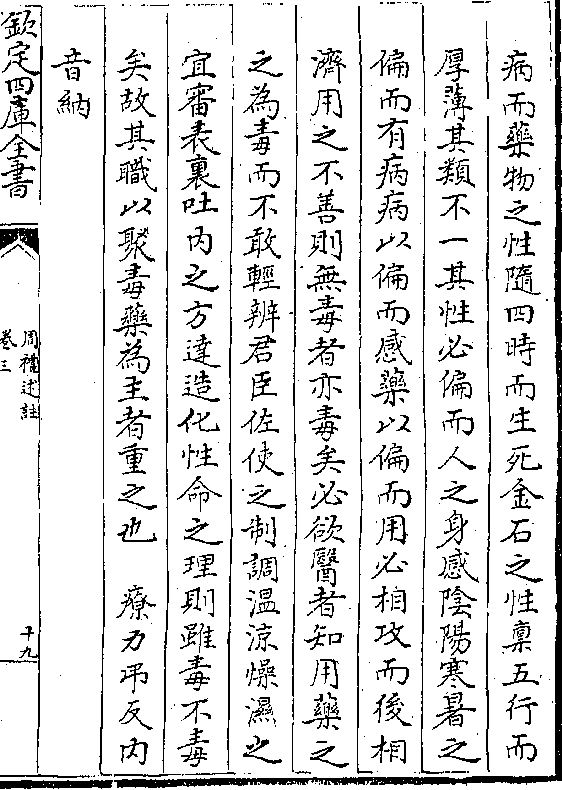 病而藥物之性隨四時而生死金石之性禀五行而
厚薄其類不一其性必偏而人之身感陰陽寒暑之
偏而有病病以偏而感藥以偏而用必相攻而後相
濟用之不善則無毒者亦毒矣必欲醫者知用藥之
之為毒而不敢輕辨君臣佐使之制調溫涼燥濕之
宜審表裏吐内之方達造化性命之理則雖毒不毒
矣故其職以聚毒藥為主者重之也　療力弔反内
音納
欽定四庫全書
周禮述註
卷三
十九